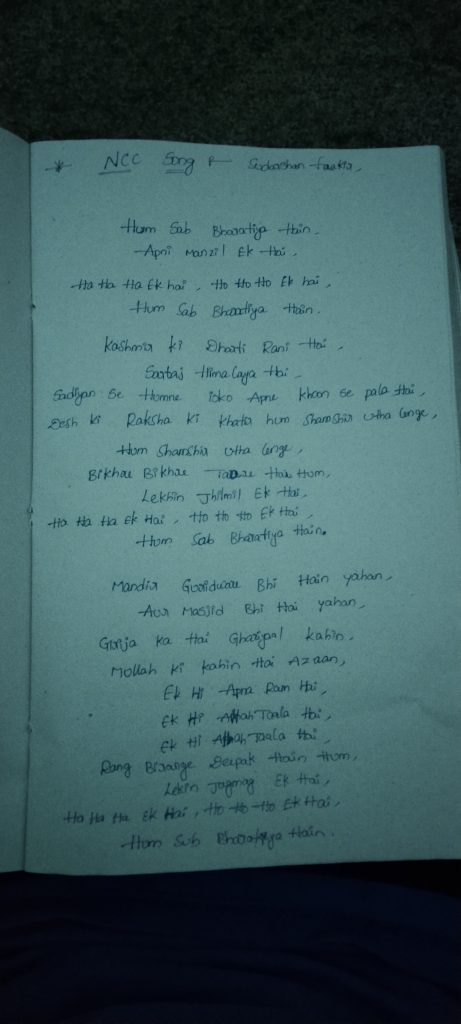 * NCC Song :- Sudarshan faakir,
Hum Sab Bharatiya Hain,
Apni Manzil Ek Hai,
Ha Ha Ha Ek hai, Ho Ho Ho Ek hai,
Hum Sab Bharatiya Hain.
Kashmir ki Dharti Rani Hai,
Sartaj Himalaya Hai,
Sadiyon se Humne isko Apne khoon se pala Hai,
Desh ki Raksha ki khatir hum Shamshir utha lenge,
Hum Shamshir utha lenge,
Bikhre Bikhre Taare Hai Hum,
Lekhin Jhilmil Ek Hai,
Ha Ha Ha Ek Hai, Ho Ho Ho Ek Hai,
Hum Sab Bharatiya Hain.
Mandir Gurudware Bhi Hain yahan,
Aur Masjid Bhi Hai yahan,
Girija ka Hai Ghariyaal kahin,
Mollah ki kahin Hai Azaan,
Ek Hi Apna Ram Hai,
Ek Hi Allah Taala Hai,
Ek Hi Allah Taala Hai,
Rang Birange Deepak Hain Hum,
Lekin Jagmag Ek Hai,
Ha Ha Ha Ek Hai, Ho Ho Ho Ek Hai,
Hum Sub Bharatiya Hain.